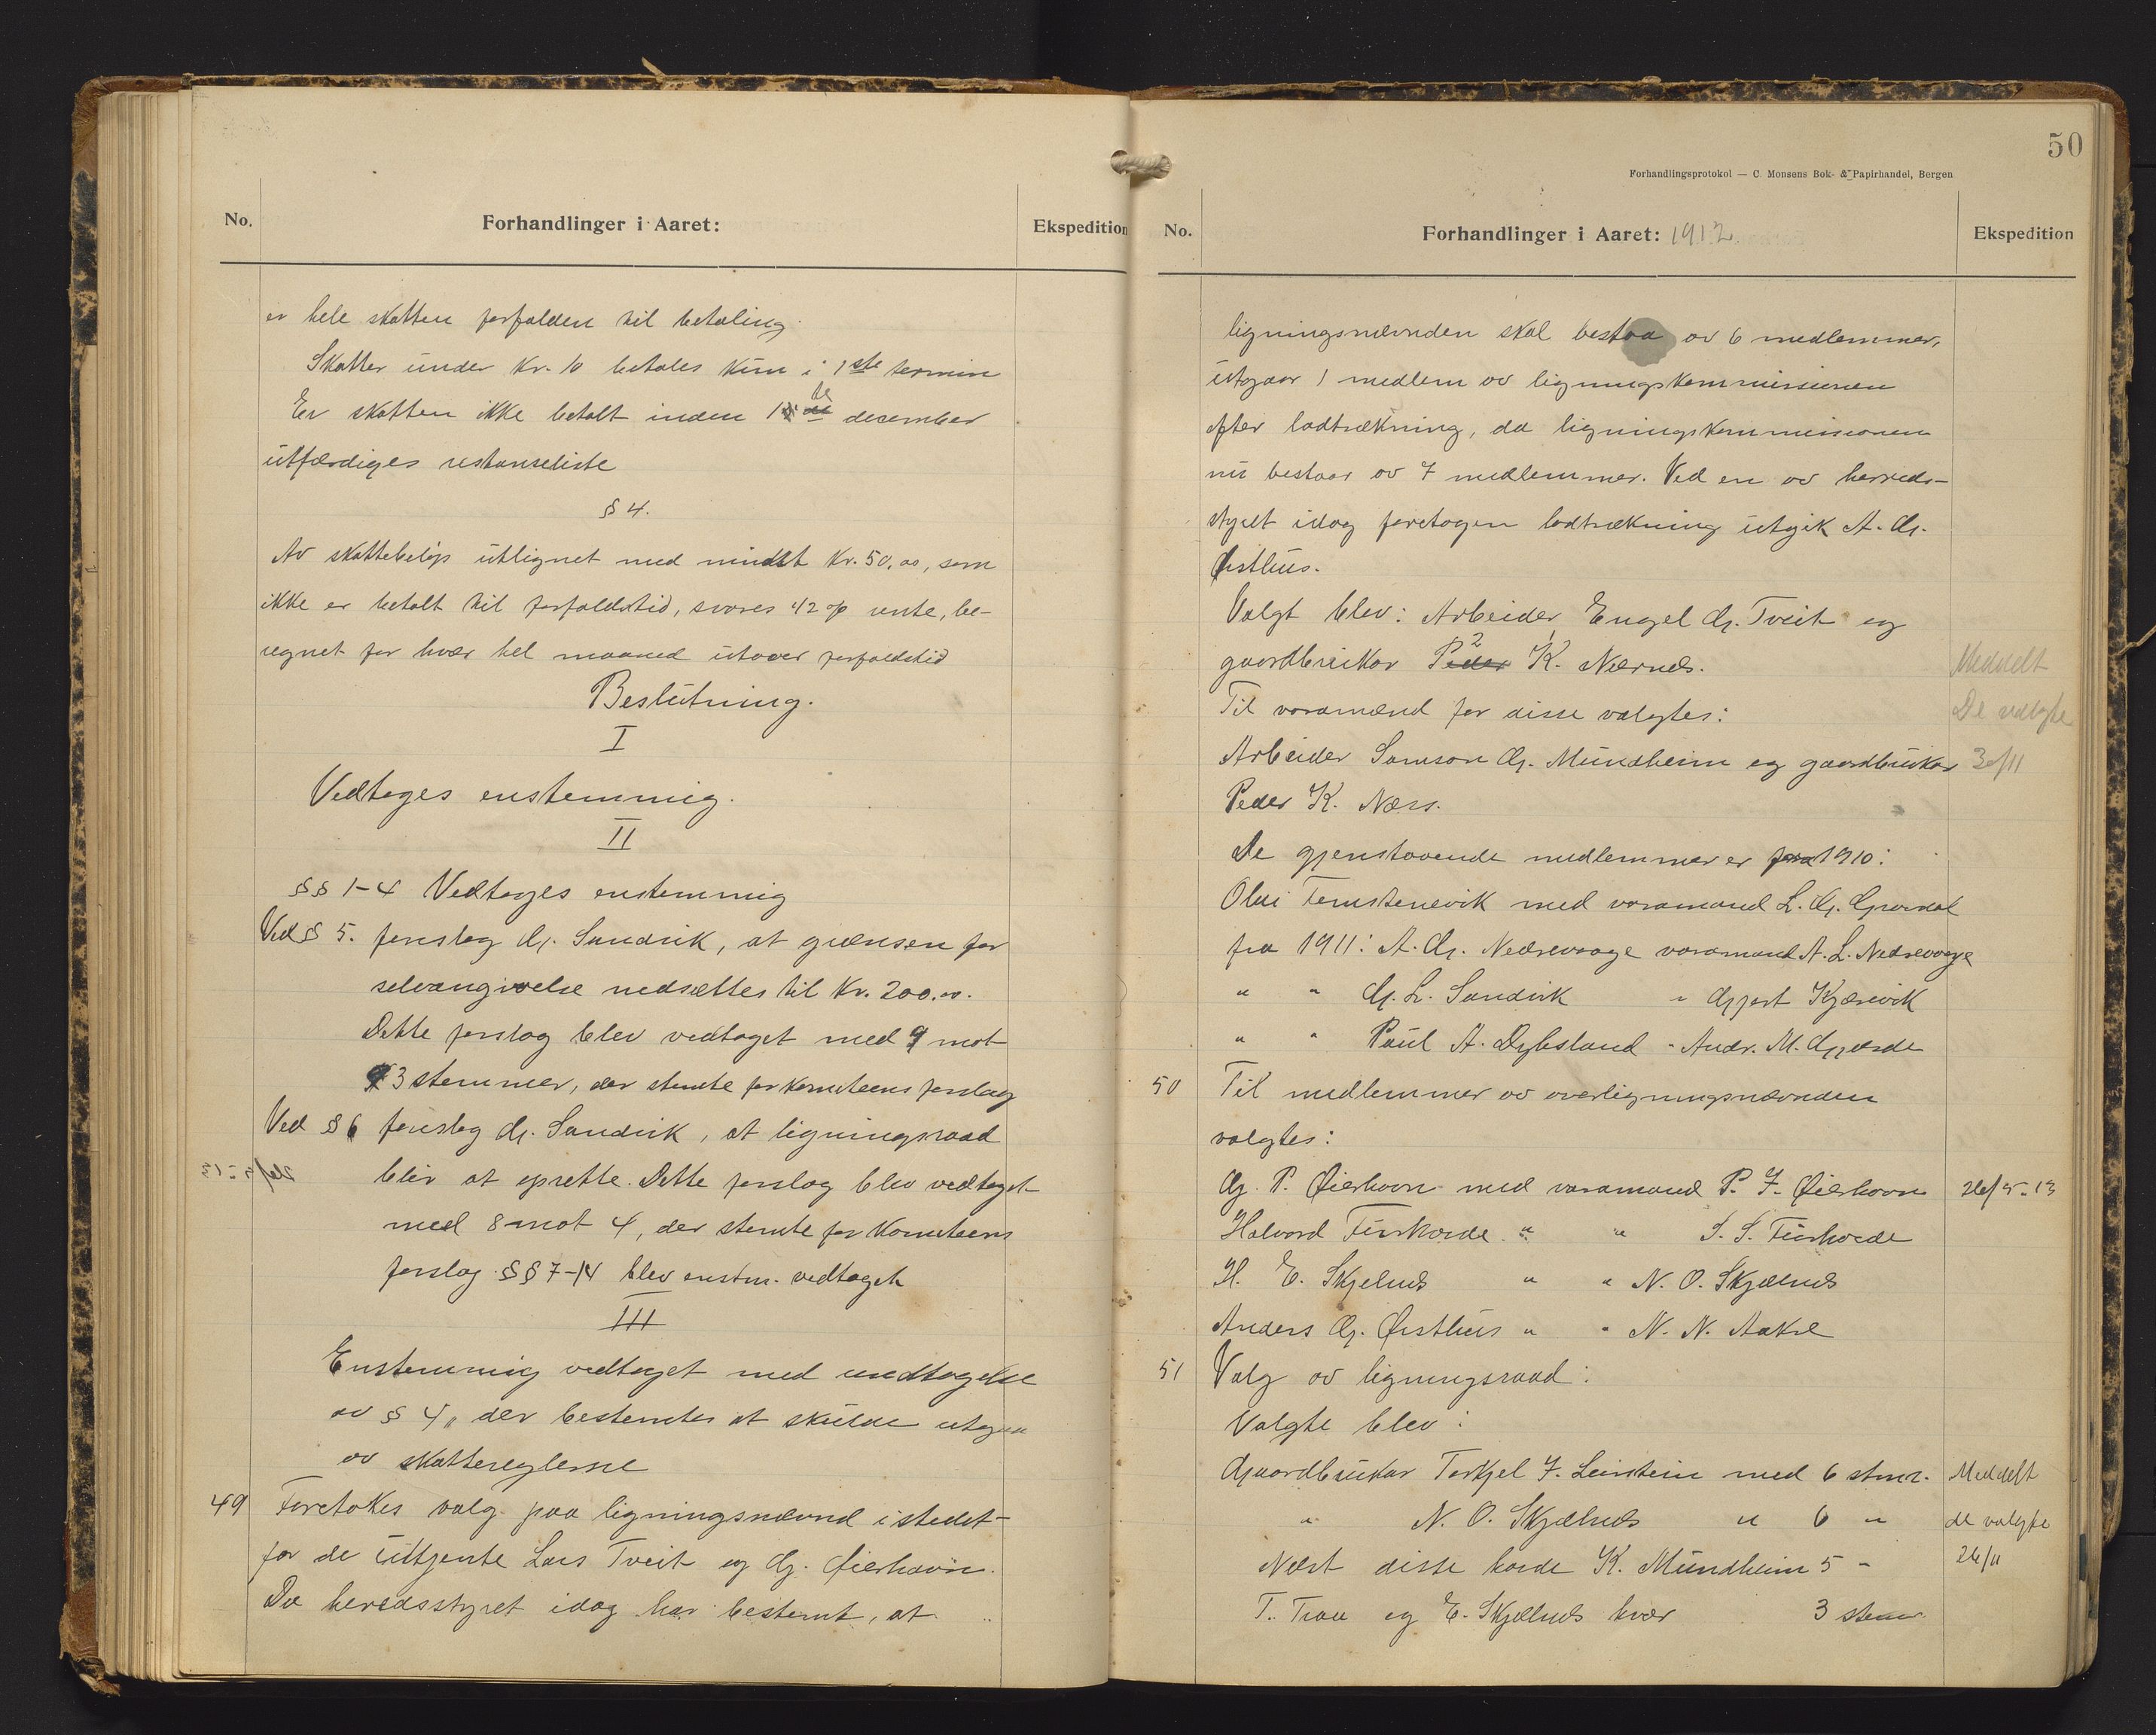 No.
Forhandlinger i Aaret:
Ekspedition
er hele skatten forfalden til betaling.
Skatter under kr. 10 betales kun i 1ste termin
Er skatten ikke betalt inden 1 de december
utfærdiges restanseliste
§ 4.
Av skattebeløp utlignet med mindst kr. 50,00, som
ikke er betalt til forfaldstid, svares 1/2 % rente, be-
regnet for hver hel maaned utover forfaldstid
Beslutning.
I
Vedtages enstemmig.
II
§§ 1-4 Vedtages enstemmig
Ved § 5. foreslog G. Sandvik, at grænsen for
selvangivelse nedsættes til kr. 200.00.
Dette forslag blev vedtaget med 9 mot
3 stemmer, der stemte for komiteens forslag
Ved § 6 foreslog G. Sandvik, at ligningsraad
blir at oprette. Dette forslag blev vedtaget
med 8 mot 4, der stemte for komiteens
forslag. §§ 7-14 blev enstm. vedtaget
III
Enstemmig vedtaget med undtagelse
av § 4, der bestemtes at skulde utgaa
av skattereglerne
49 Foretokes valg paa ligningsnævnd istedet-
for de uttjente Lars Tveit og G. Øierhavn.
Da heredsstyret idag har bestemt, at
50
Forhandlingsprotokol — C. Monsens Bok- & Papirhandel, Bergen
No.
Forhandlinger i Aaret: 1912
Ekspedition
ligningsnævnden skal bestaa av 6 medlemmer,
utgaar 1 medlem av ligningskommissionen
efter lodtrækning, da ligningskommissionen
nu bestaar av 7 medlemmer. Ved en av herreds-
styret idag foretagen lodtrækning utgik A. G.
Østhus.
Valgt blev: Arbeider Engel G. Tveit og
gaardbruker Peder K. Nernes. Meddelt
Til varamænd for disse valgtes: De valgte
Arbeider Samson G. Mundheim og gaardbruker 30/11
Peder K. Næss.
De gjenstaaende medlemmer er fra 1910:
Olai Ternstenevik med varamand L. G.
fra 1911: A. G. Nedrevaage varamand A. L. Nedrevaage
" " G. L. Sandvik " Gjert Kjærevik
" " Paul A. Dybsland " Andr. M. Gjerde
50 Til medlemmer av overligningsnævnden
valgtes:
G. P. Øierhavn med varamand P. J. Øierhavn 26/5-13
Halvard Furhovde " " S. S. Furhovde
H. E. Skjelnes " " N. O. Skjælnes
Anders G. Østhus " " N. N. Aakre
51 Valg av ligningsraad:
Valgte blev:
Gaardbruker Torkjel J. Leirstein med 6 stmr. Meddelt
" N. O. Skjælnes " 6 " de valgte
Næst disse havde K. Mundheim 5 " 26/11
T. Traa og E. Skjælnes hver 3 stem.